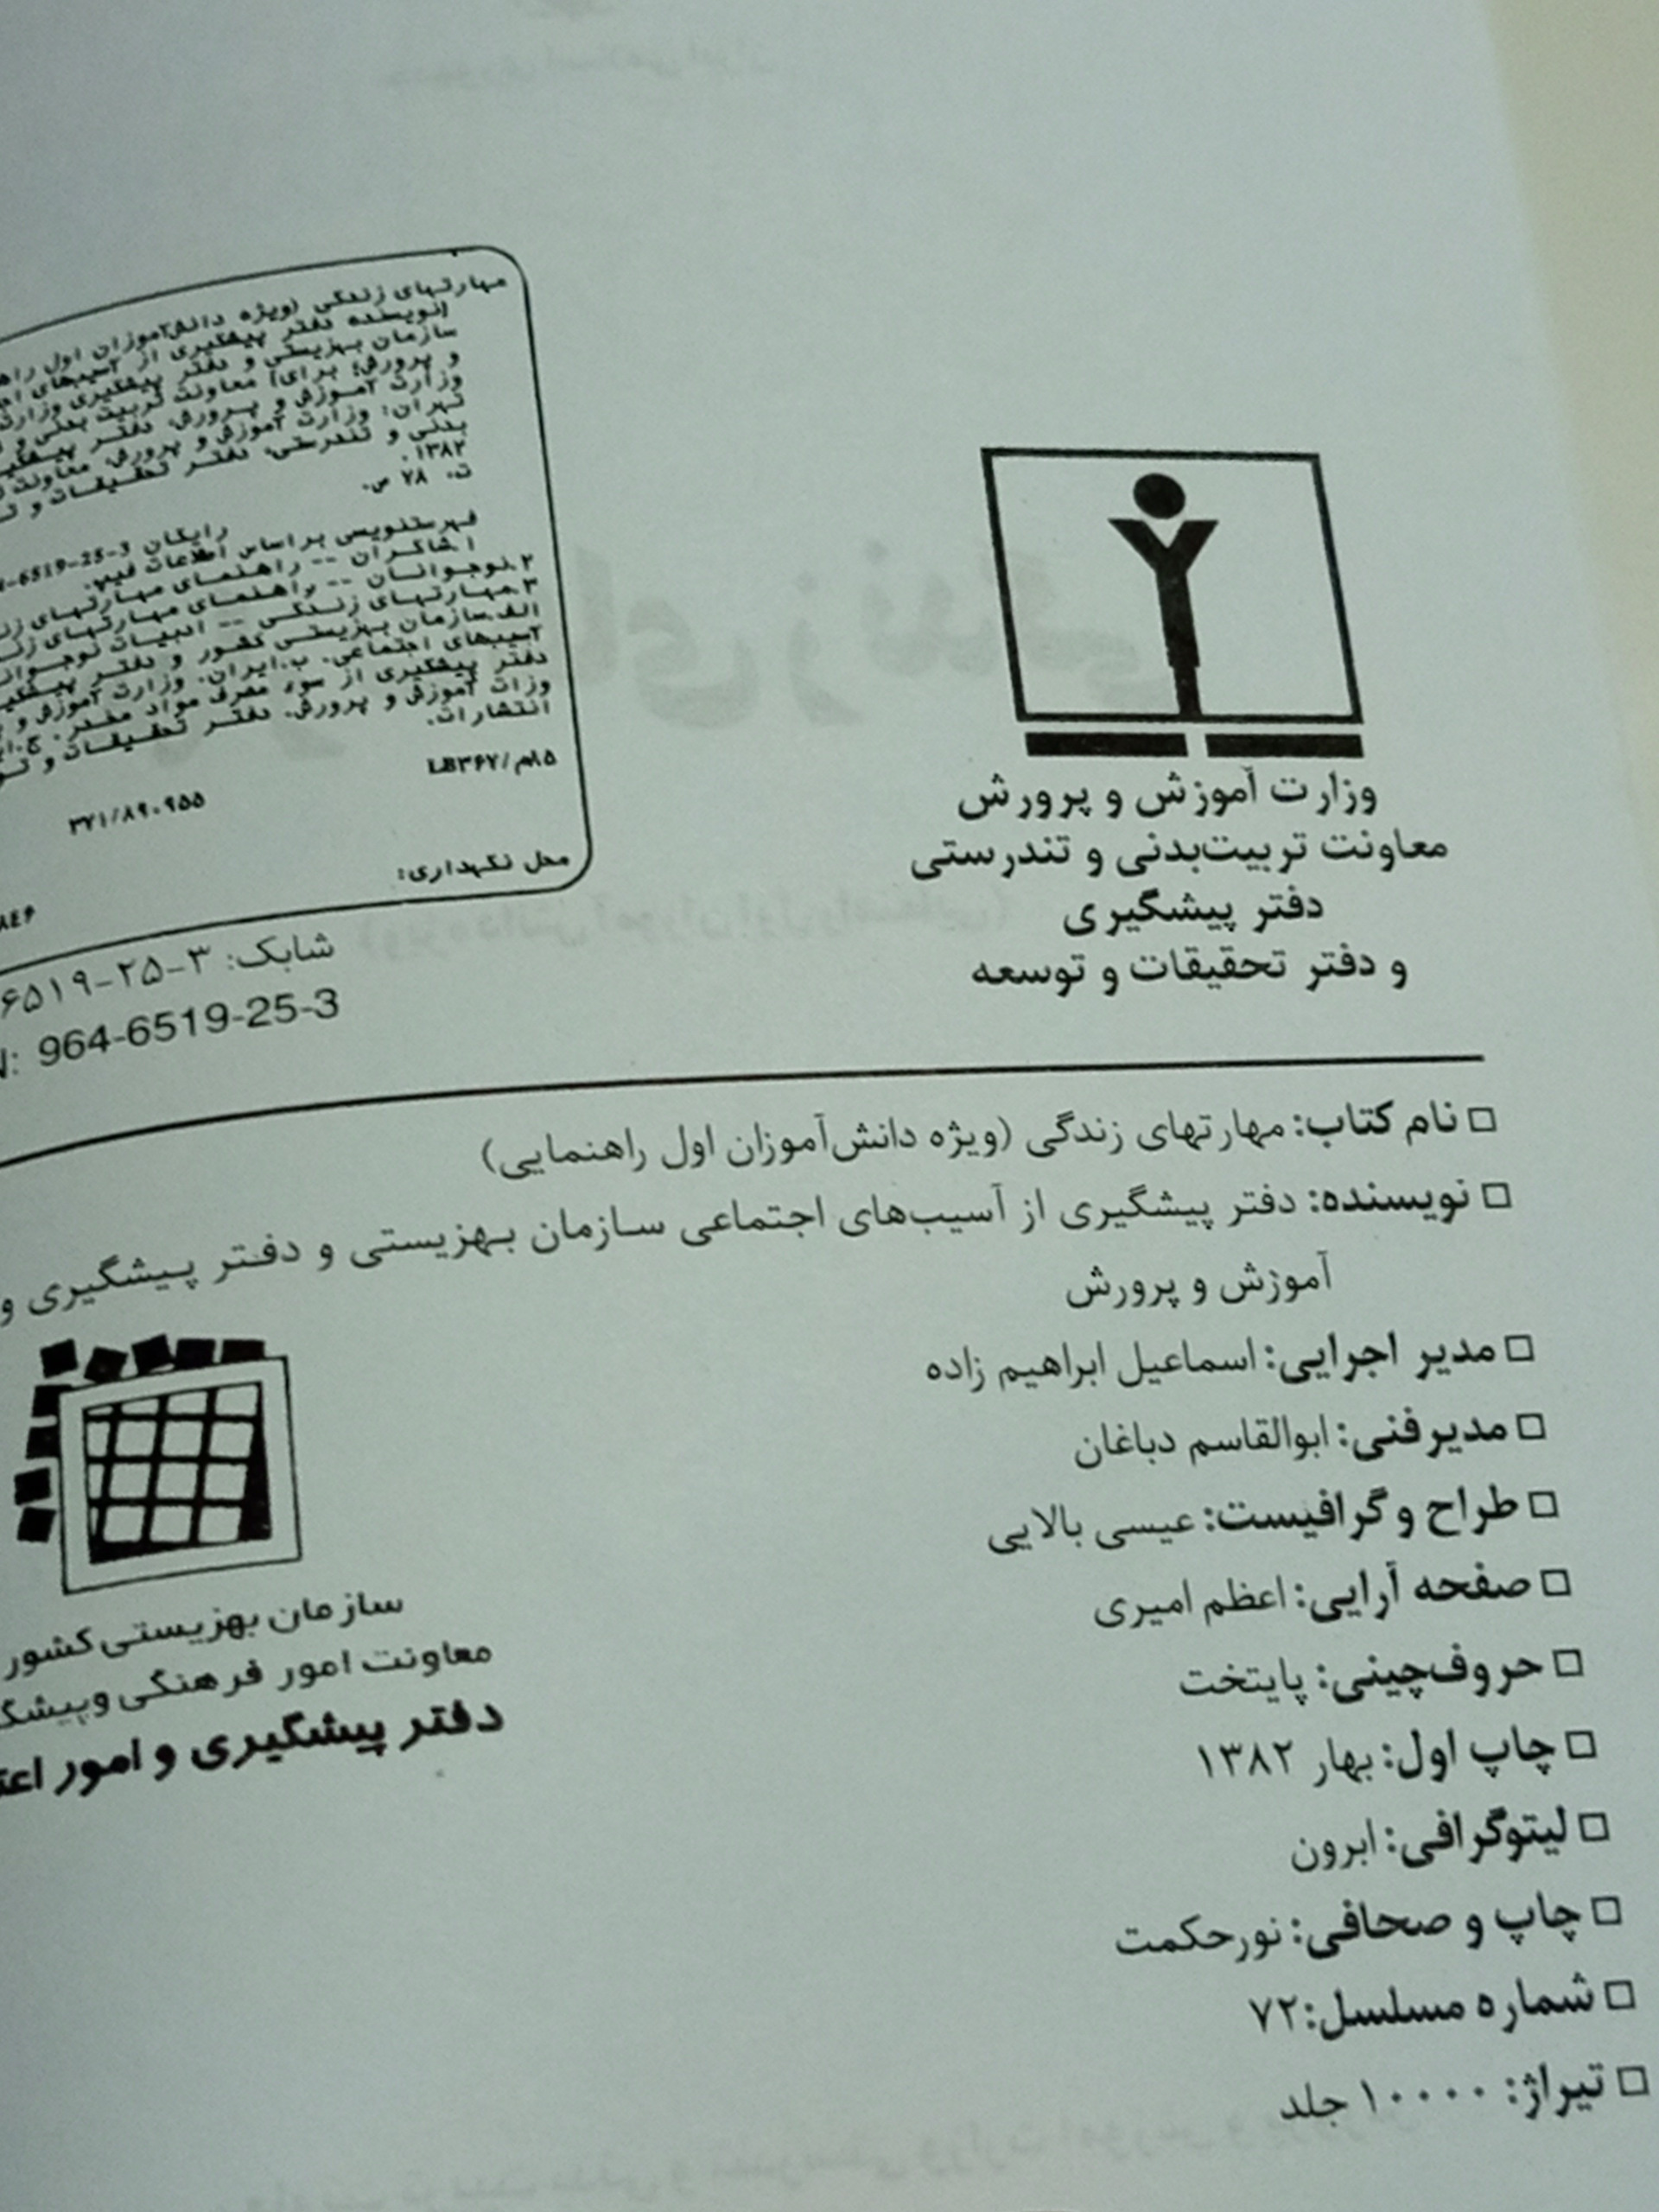 مهارتهای زندگی (ویژه دانش‌آموزان اول
[نویسنده دفتر پیشگیری از آسیبهای
سازمان بهزیستی و دفتر پیشگیری
و پرورش؛ برای] معاونت تربیت بدنی و
وزارت آموزش و پرورش، دفتر
تهران: وزارت آموزش و پرورش، معاونت
بدنی و تندرستی، دفتر تحقیقات و
۱۳۸۲.
۲۸ ص.
رایگان 6519-25-3
فهرستنویسی براساس اطلاعات فیپا.
۱.شاگردان -- راهنمای مهارتهای
۲.نوجوانان -- راهنمای مهارتهای
۳.مهارتهای زندگی -- ادبیات
الف.سازمان بهزیستی کشور و دفتر
آسیبهای اجتماعی. ب.ایران. وزارت آموزش و
دفتر پیشگیری از سوء مصرف مواد مخدر. ج.
وزات آموزش و پرورش. دفتر تحقیقات و
انتشارات.
۳۷۱/۸۹۰۹۵۵
محل نگهداری:
شابک: ۳-۲۵-۶۵۱۹
964-6519-25-3
وزارت آموزش و پرورش
معاونت تربیت‌بدنی و تندرستی
دفتر پیشگیری
و دفتر تحقیقات و توسعه
□ نام کتاب: مهارتهای زندگی (ویژه دانش‌آموزان اول راهنمایی)
□ نویسنده: دفتر پیشگیری از آسیب‌های اجتماعی سازمان بهزیستی و دفتر پیشگیری و
آموزش و پرورش
□ مدیر اجرایی: اسماعیل ابراهیم زاده
□ مدیرفنی: ابوالقاسم دباغان
□ طراح و گرافیست: عیسی بالایی
□ صفحه آرایی: اعظم امیری
□ حروف‌چینی: پایتخت
□ چاپ اول: بهار ۱۳۸۲
□ لیتوگرافی: ابرون
□ چاپ و صحافی: نورحکمت
□ شماره مسلسل: ۷۲
□ تیراژ: ۱۰۰۰۰ جلد
سازمان بهزیستی کشور
معاونت امور فرهنگی و
دفتر پیشگیری و امور